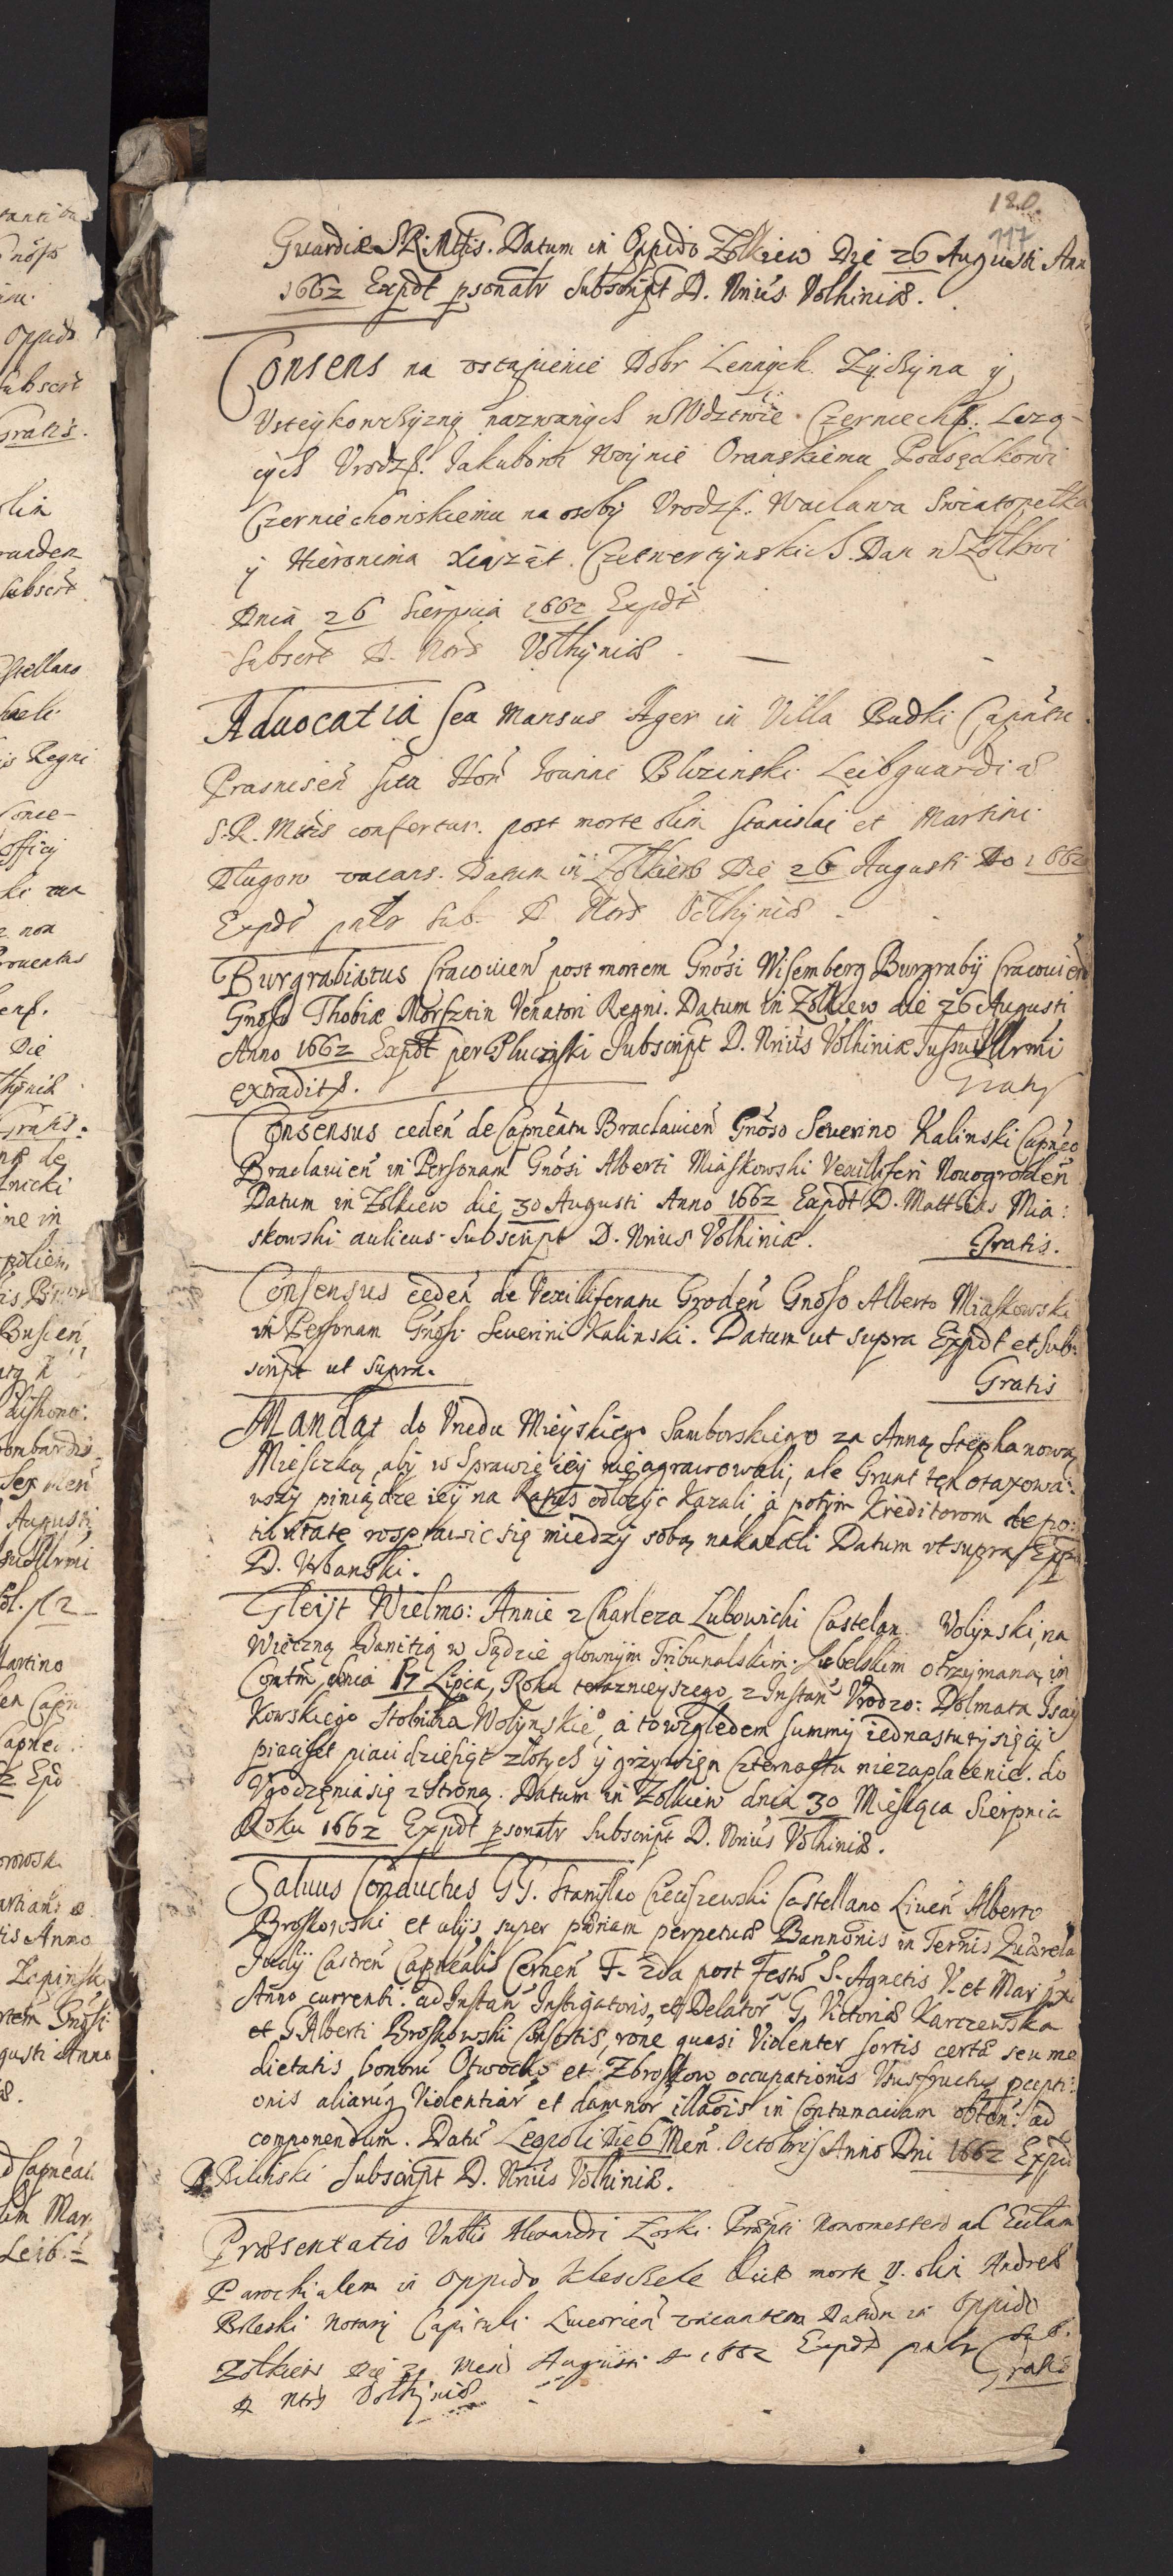 180.
117
Guardiæ SRMttis. Datum in Oppido Zolkiew Die 26 Augusti Ann
1662 Expdt psonatr Subscript D. Nrius Volhiniæ.
Consens na vstąpienie Dobr Lennych Zychyna y
Vsteykowchyzny nazwanych w Wdztwie Czerniechs. Lezą-
cych Vrodzs. Jakubowi Woynie Oranskiemu Podsędkowi
Czerniechowskiemu na osoby Vrodzs. Waclawa Swiatopełka
y Hieronima Xiąząt Czetwertynskich. Dan w Zołkwi
Dnia 26 Sierpnia 1662 Expdt
Subscrt D. Nors Volhyniæ.
Aduocatia seu Mansus Ager in Villa Budki Capnatu
Prasnisen sita Hon Joanni Blizinski Leibguardiæ
S.R.Mttis confertur. post morte olim Stanislai et Martini
Dlugow vacans. Datum in Zołkiew Die 26 Augusti Ao 1662
Expdt patr Sub. D Nors Volhyniæ
Burgrabiatus Cracouien post mortem Gnosi Wisemberg Burgrabij Cracouien
Gnoso Thobiæ Morsztin Venatori Regni. Datum in Zolkiew die 26 Augusti
Anno 1662 Expdt per Pluczynski Subscript D. Nrius Volhiniæ Jussu Illrmi
extradits. Gratis
Consensus ceden de Capneatu Braclauien Gnoso Seuerino Kalinski Capneo
Braclauien in Personam Gnosi Alberti Miaskowski Vexilliferi Nouogroden
Datum in Zolkiew die 30 Augusti Anno 1662 Expdt D. Matthias Mia:
skowski aulicus. Subscript D. Nrius Volhiniæ. Gratis.
Consensus ceden de Vexilliferatu Groden Gnoso Alberto Miaskowski
in Personam Gnosi Seuerini Kalinski. Datum ut supra Expdt et Sub:
script ut supra. Gratis
Mandat do Vrzedu Mieyskiego Samborskiego za Anną Stephanową
Miesczką aby w Sprawie iey nie agrawowali, ale Grunt ten otaxowa:
wszy piniądze iey na Ratus odłozyc kazali, a potym Kreditorom de po:
tioritate rosprawic się miedzy sobą nakazali Datum vt supra Exp
D. Vrbanski.
Gleyt Wielmo: Annie z Charleza Lubowicki Castelan Volynski, na
Wieczną Banitią w Sądzie glownym Tribunalskim Lubelskim otrzymaną in
Contm dnia 17 Lipca, Roku teraznieyszego z Instan Vrodzo: Dolmata Isay
kowskiego Stolnika Wolynskie, a to względem summy iednastu tysięcy
pięciset piąci dziesiąt złotych y grzywien czternastu niezapłacenie. do
Vgodzenia się z Stroną. Datum in Zolkiew dnia 30 Miesiąca Sierpnia
Roku 1662 Expdt psonatr Subscript D. Nrius Volhiniæ.
Saluus Conductus GG. Stanislao Cieciszewski Castellano Liuen Alberto
Broskowski et alijs, super pœnam perpetuæ Bannonis in Termis Querela
Judij Castren Capnealis Cernen F. 2da post Festu S. Agnetis V. et Mar pxi
Anno currenti. ad Instan Instigatoris, et Delator G. Victoriæ Karczewska
et G Alberti Broskowski Consortis, rone quasi Violenter sortis certæ seu me
dietatis bonoru Otwocko et Zbroskow occupationis Vsusfructus pcepti:
onis aliaruq Violentiar et damnor illaois in Contumaciam obten. ad
componendum. Datu Leopoli Die 6 Men. Octobris Anno Dni 1662 Expd
D. Bilinski Subscript D. Nrius Volhiniæ.
Præsentatio Vnbtis Alexandri Zorski Præpti Nowomesten ad Ecclam
Parochialem in Oppido Kleschele Post morte V. olim Andreæ
Bileski Notarij Capituli Luceorien vacantem Datum in Oppido
Zołkiew Die 31 Mesis Augusti A 1662 Expdt patr Sub.
D Nrs Volhyniæ Gratis